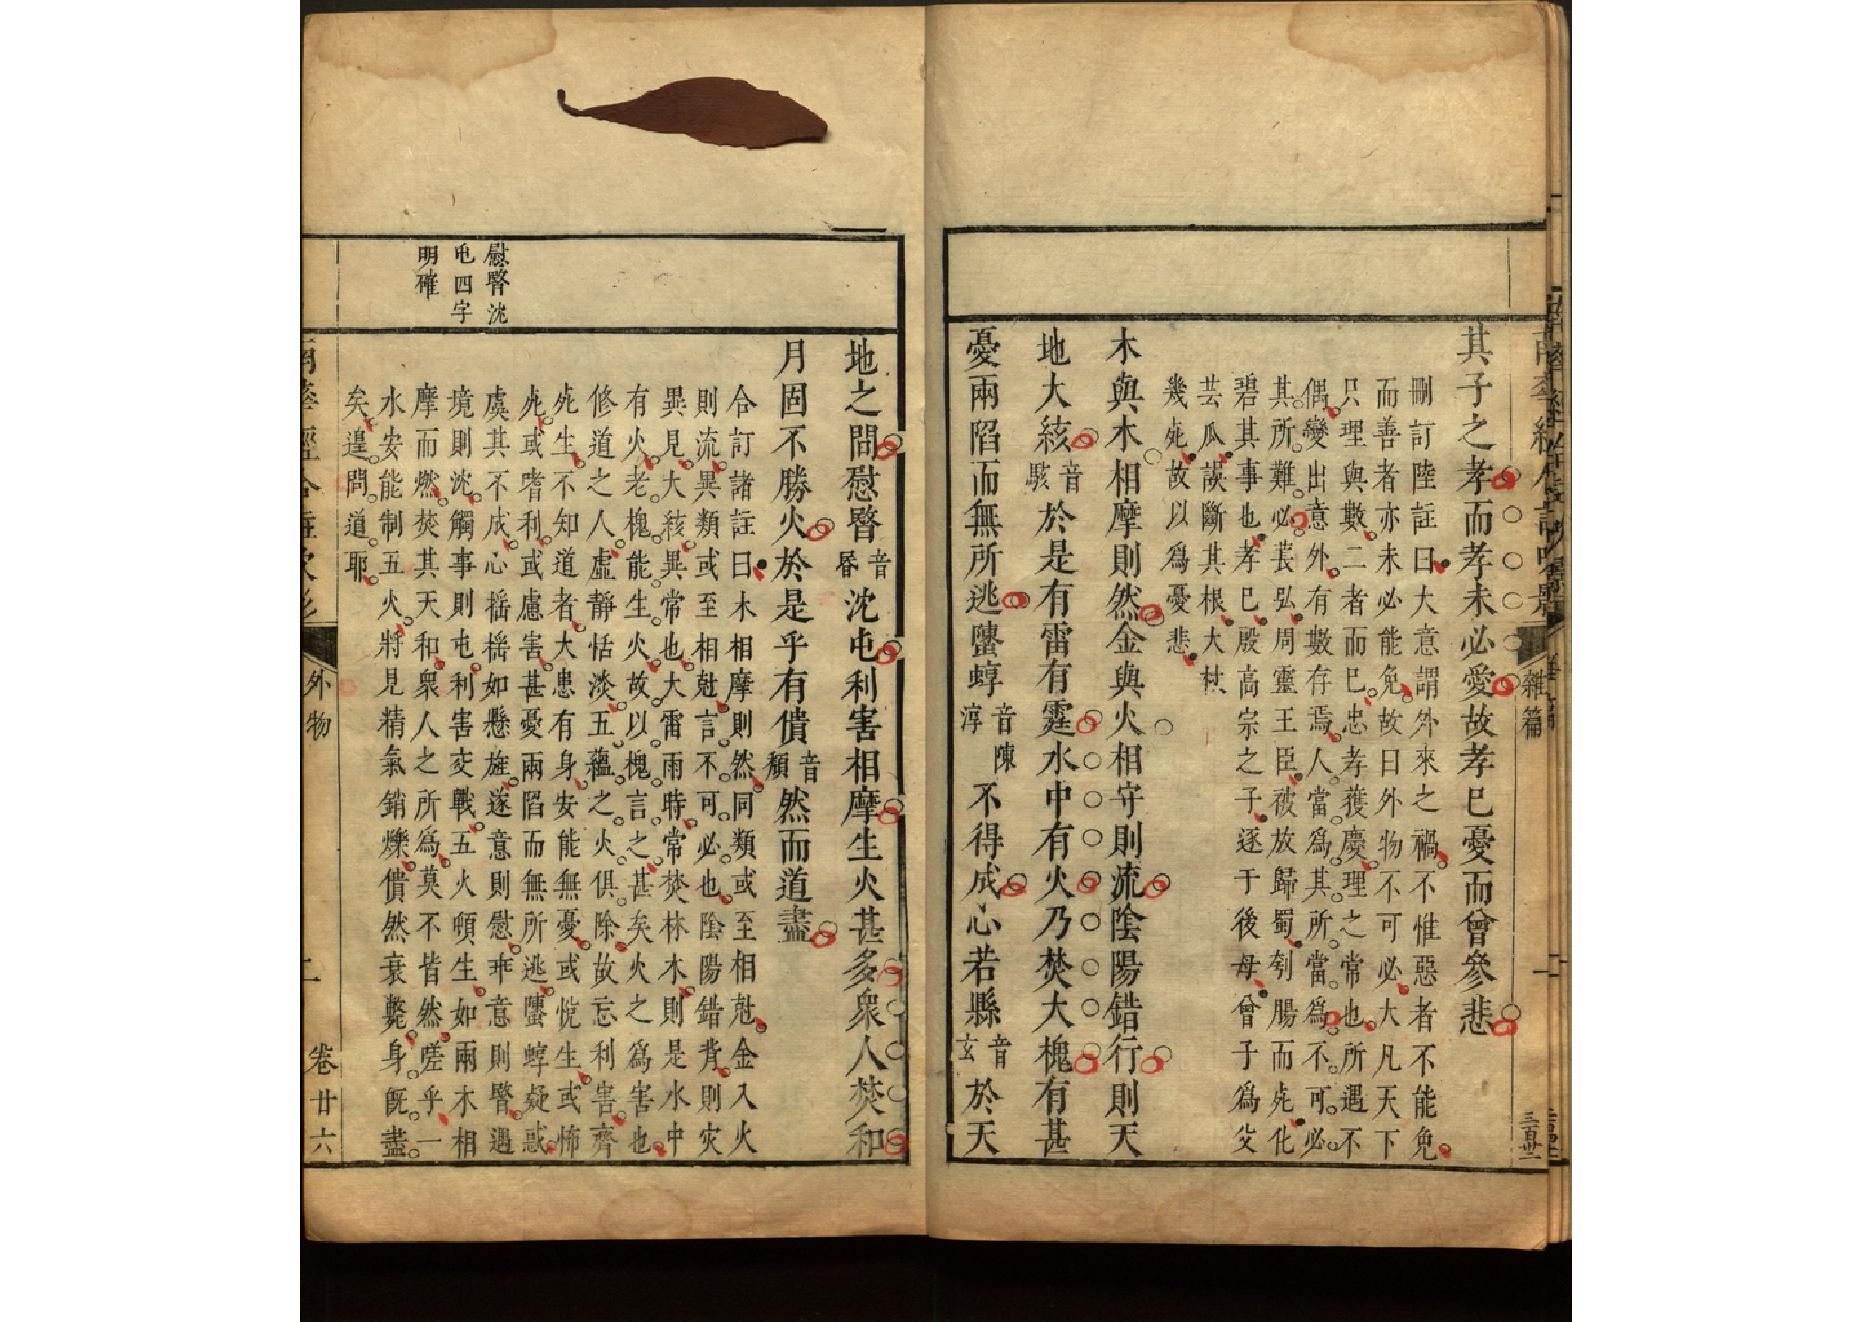 其子之孝而孝未必愛故孝已憂而曾參悲
刪訂陸註曰大意謂外來之禍不惟惡者不能免
而善者亦未必能免故曰外物不可必大凡天下
只理與數二者而已忠孝獲慶理之常也所遇不
偶變出意外有數存焉人當爲其所當爲不可必
其所難必萇弘周靈王臣被放歸蜀刳腸而死化
碧其事也孝已殷高宗之子逐于後母曾子爲父
芸瓜誤斷其根大杖
幾死故以爲憂悲
木與木相摩則然金與火相守則流陰陽錯行則天
地大絯音駭於是有雷有霆水中有火乃焚大槐有甚
憂兩陷而無所逃螴蜳音陳淳不得成心若縣音玄於天
雜篇
地之間慰暋音昬沈屯利害相摩生火甚多衆人焚和
月固不勝火於是乎有僓音頹然而道盡
合訂諸註曰木相摩則然同類或至相尅金入火
則流異類或至相尅言不可必也陰陽錯背則灾
異見大絯異常也大雷雨時常焚林木則是水中
有火老槐能生火故以槐言之甚矣火之爲害也
修道之人虛靜恬淡五蘊之火俱除故忘利害齊
死生不知道者大患有身安能無憂或恱生或怖
死或嗜利或慮害甚憂兩陷而無所逃螴蜳疑惑
虞其不成心榣榣如懸旌遂意則慰乖意則暋遇
境則沈觸事則屯利害交戰五火頓生如兩木相
摩而燃焚其天和衆人之所爲莫不皆然嗟乎一
水安能制五火將見精氣銷爍僓然衰斃身旣盡
矣遑問道耶
慰暋沈
屯四字
明確
外物
卷廿六